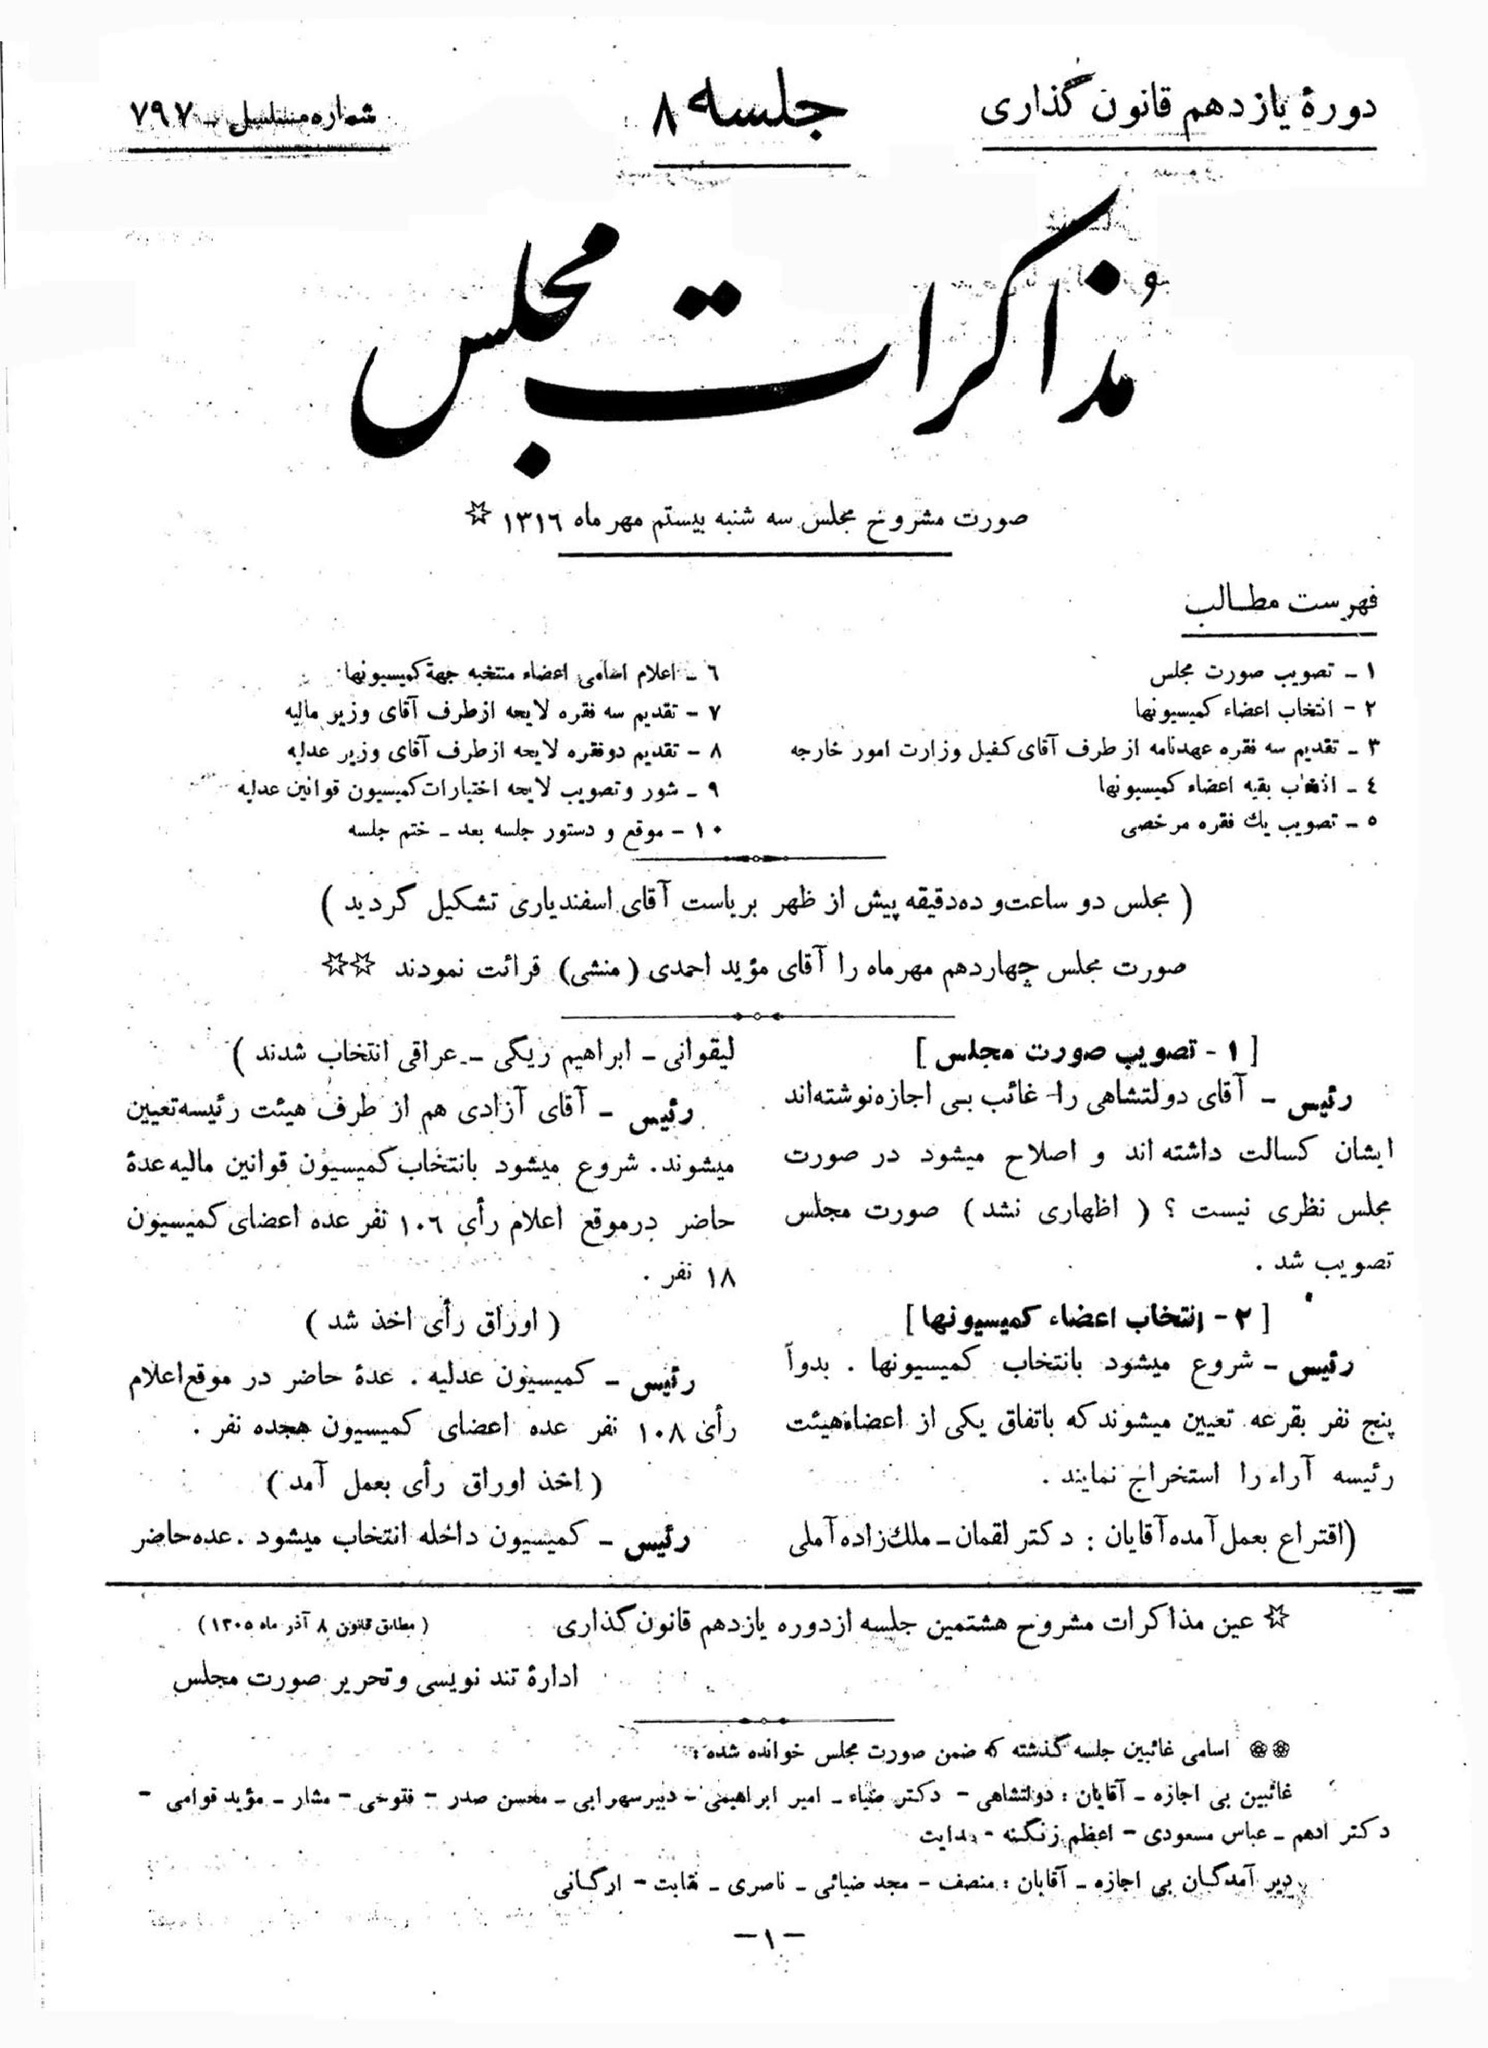 دورهٔ یازدهم قانون گذاری
جلسه ۸
شماره مسلسل - ۷۹۷
مذاکرات مجلس
صورت مشروح مجلس سه شنبه بیستم مهر ماه ۱۳۱۶ ☆
فهرست مطالب
۱ - تصویب صورت مجلس
۲ - انتخاب اعضاء کمیسیونها
۳ - تقدیم سه فقره عهدنامه از طرف آقای کفیل وزارت امور خارجه
۴ - انتخاب بقیه اعضاء کمیسیونها
۵ - تصویب یك فقره مرخصی
۶ - اعلام اسامی اعضاء منتخبه جهة کمیسیونها
۷ - تقدیم سه فقره لایحه از طرف آقای وزیر مالیه
۸ - تقدیم دو فقره لایحه از طرف آقای وزیر عدلیه
۹ - شور و تصویب لایحه اختیارات کمیسیون قوانین عدلیه
۱۰ - موقع و دستور جلسه بعد - ختم جلسه
( مجلس دو ساعت و ده دقیقه پیش از ظهر بریاست آقای اسفندیاری تشکیل گردید )
صورت مجلس چهاردهم مهرماه را آقای مؤید احمدی ( منشی ) قرائت نمودند ☆☆
[ ۱ - تصویب صورت مجلس ]
رئیس - آقای دولتشاهی را غائب بی اجازه نوشته‌اند
ایشان کسالت داشته اند و اصلاح میشود در صورت
مجلس نظری نیست ؟ ( اظهاری نشد ) صورت مجلس
تصویب شد .
[ ۲ - انتخاب اعضاء کمیسیونها ]
رئیس - شروع میشود بانتخاب کمیسیونها . بدواً
پنج نفر بقرعه تعیین میشوند که باتفاق یکی از اعضاء هیئت
رئیسه آراء را استخراج نمایند .
(اقتراع بعمل آمده آقایان : دکتر لقمان - ملك زاده آملی
لیقوانی - ابراهیم ریگی - عراقی انتخاب شدند )
رئیس - آقای آزادی هم از طرف هیئت رئیسه تعیین
میشوند . شروع میشود بانتخاب کمیسیون قوانین مالیه عدهٔ
حاضر در موقع اعلام رأی ۱۰۶ نفر عده اعضای کمیسیون
۱۸ نفر .
( اوراق رأی اخذ شد )
رئیس - کمیسیون عدلیه . عدهٔ حاضر در موقع اعلام
رأی ۱۰۸ نفر عده اعضای کمیسیون هجده نفر .
( اخذ اوراق رأی بعمل آمد )
رئیس - کمیسیون داخله انتخاب میشود . عده حاضر
☆ عین مذاکرات مشروح هشتمین جلسه از دوره یازدهم قانون گذاری
( مطابق قانون ۸ آذر ماه ۱۳۰۵ )
ادارهٔ تند نویسی و تحریر صورت مجلس
❀❀ اسامی غائبین جلسه گذشته که ضمن صورت مجلس خوانده شده :
غائبین بی اجازه - آقایان : دولتشاهی - دکتر ضیاء - امیر ابراهیمی - دبیر سهرابی - محسن صدر - فتوحی - مشار - مؤید قوامی -
دکتر ادهم - عباس مسعودی - اعظم زنگنه - هدایت
دیر آمدگان بی اجازه - آقایان : منصف - مجد ضیائی - ناصری - نقابت - ارگانی
- ۱ -